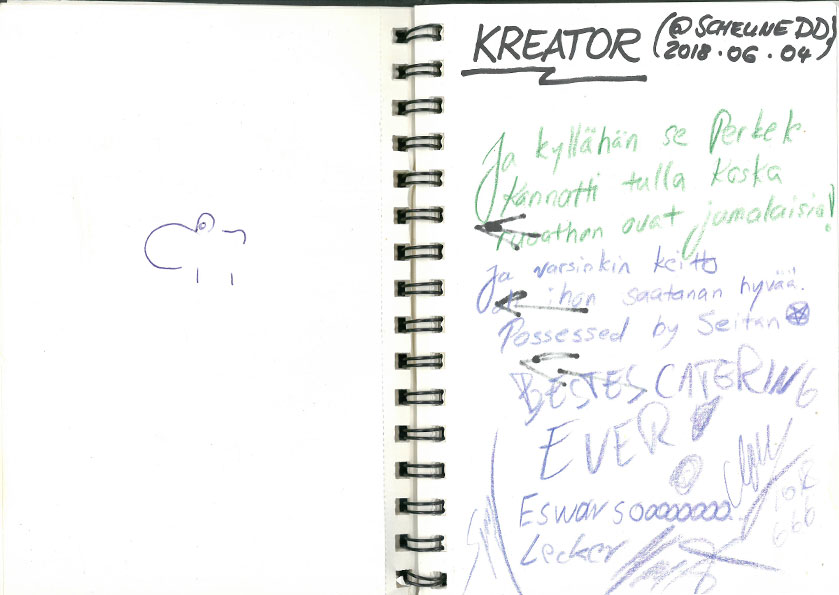 KREATOR (@SCHEUNE DD)
2018.06.04)
Ja kyllähän se Perkek
Kannatti tulla Koska
ovat jumalaisia!
Ja varsinkin keitto
ihan saatanan hyvää.
Possessed by Seitan
BESTES CATERING
EVER!
Eswar sooooooooo
Lecker
666